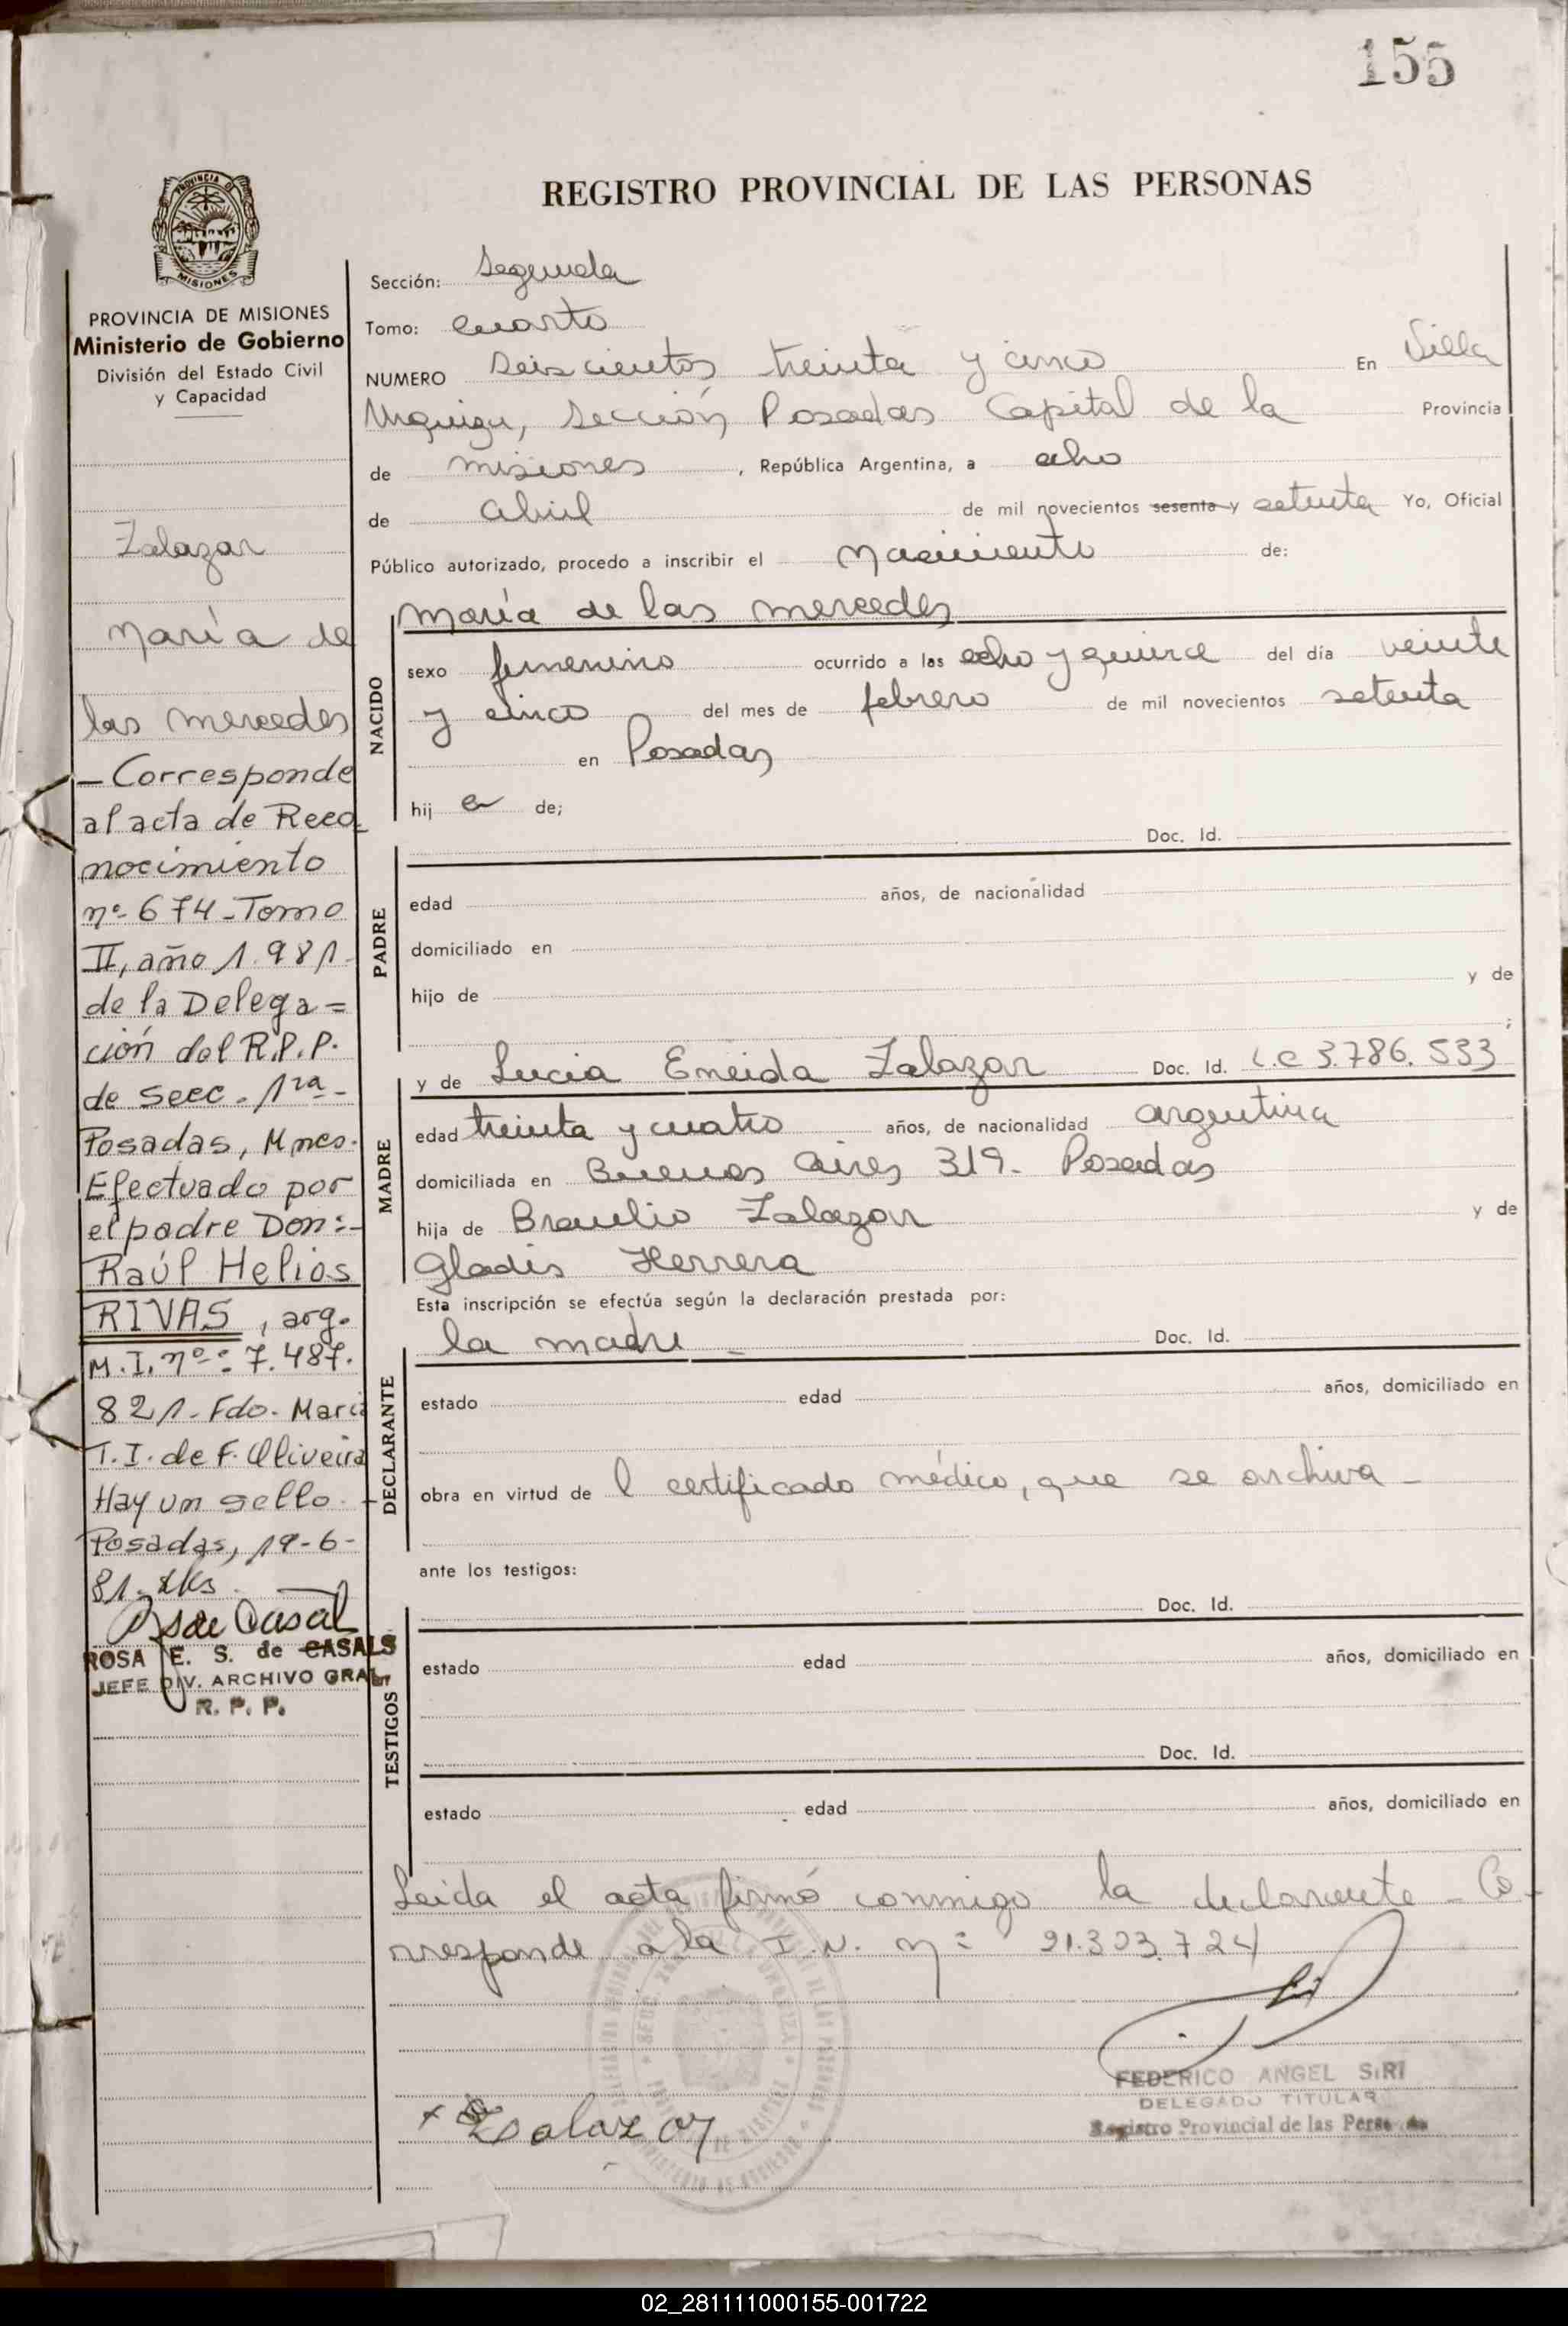 155
REGISTRO PROVINCIAL DE LAS PERSONAS
PROVINCIA DE
MISIONES
PROVINCIA DE MISIONES
Ministerio de Gobierno
División del Estado Civil
y Capacidad
Zalazar
María de
las mercedes
- Corresponde
al acta de Reco
nocimiento
nº 674 - Tomo
II, año 1.981-
de la Delega=
ción del R.P.P.
de Secc. 1ra-
Posadas, Mnes.
Efectuado por
el padre Don:-
Raúl Helios
RIVAS, arg.
M.I. nº: 7.487.
821- Fdo. María
T.I. de F. Oliveira
Hay un sello -
Posadas, 19-6-
81.
ROSA E. S. de CASALS
JEFE DIV. ARCHIVO GRAL.
R. P. P.
Sección: Segunda
Tomo: cuarto
NUMERO Seiscientos treinta y cinco En Villa
Urquiza, Sección Posadas Capital de la Provincia
de misiones, República Argentina, a ocho
de abril de mil novecientos sesenta y setenta Yo, Oficial
Público autorizado, procedo a inscribir el nacimiento de:
NACIDO
maría de las mercedes
sexo femenino ocurrido a las ocho y quince del día veinte
y cinco del mes de febrero de mil novecientos setenta
en Posadas
hij a de;
Doc. Id.
PADRE
edad años, de nacionalidad
domiciliado en
hijo de y de
;
MADRE
y de Lucia Eneida Zalazar Doc. Id. L.C 3.786.533
edad treinta y cuatro años, de nacionalidad argentina
domiciliada en Buenos Aires 319- Posadas
hija de Braulio Zalazar y de
Gladis Herrera
Esta inscripción se efectúa según la declaración prestada por:
DECLARANTE
la madre - Doc. Id.
estado edad años, domiciliado en
obra en virtud de l certificado médico, que se archiva -
ante los testigos:
TESTIGOS
Doc. Id.
estado edad años, domiciliado en
Doc. Id.
estado edad años, domiciliado en
Leida el acta firmó conmigo la declarante - Co-
rresponde a la I.N. nº 21.303.724
FEDERICO ANGEL SIRI
DELEGADO TITULAR
Registro Provincial de las Personas
Zalazar
02_281111000155-001722